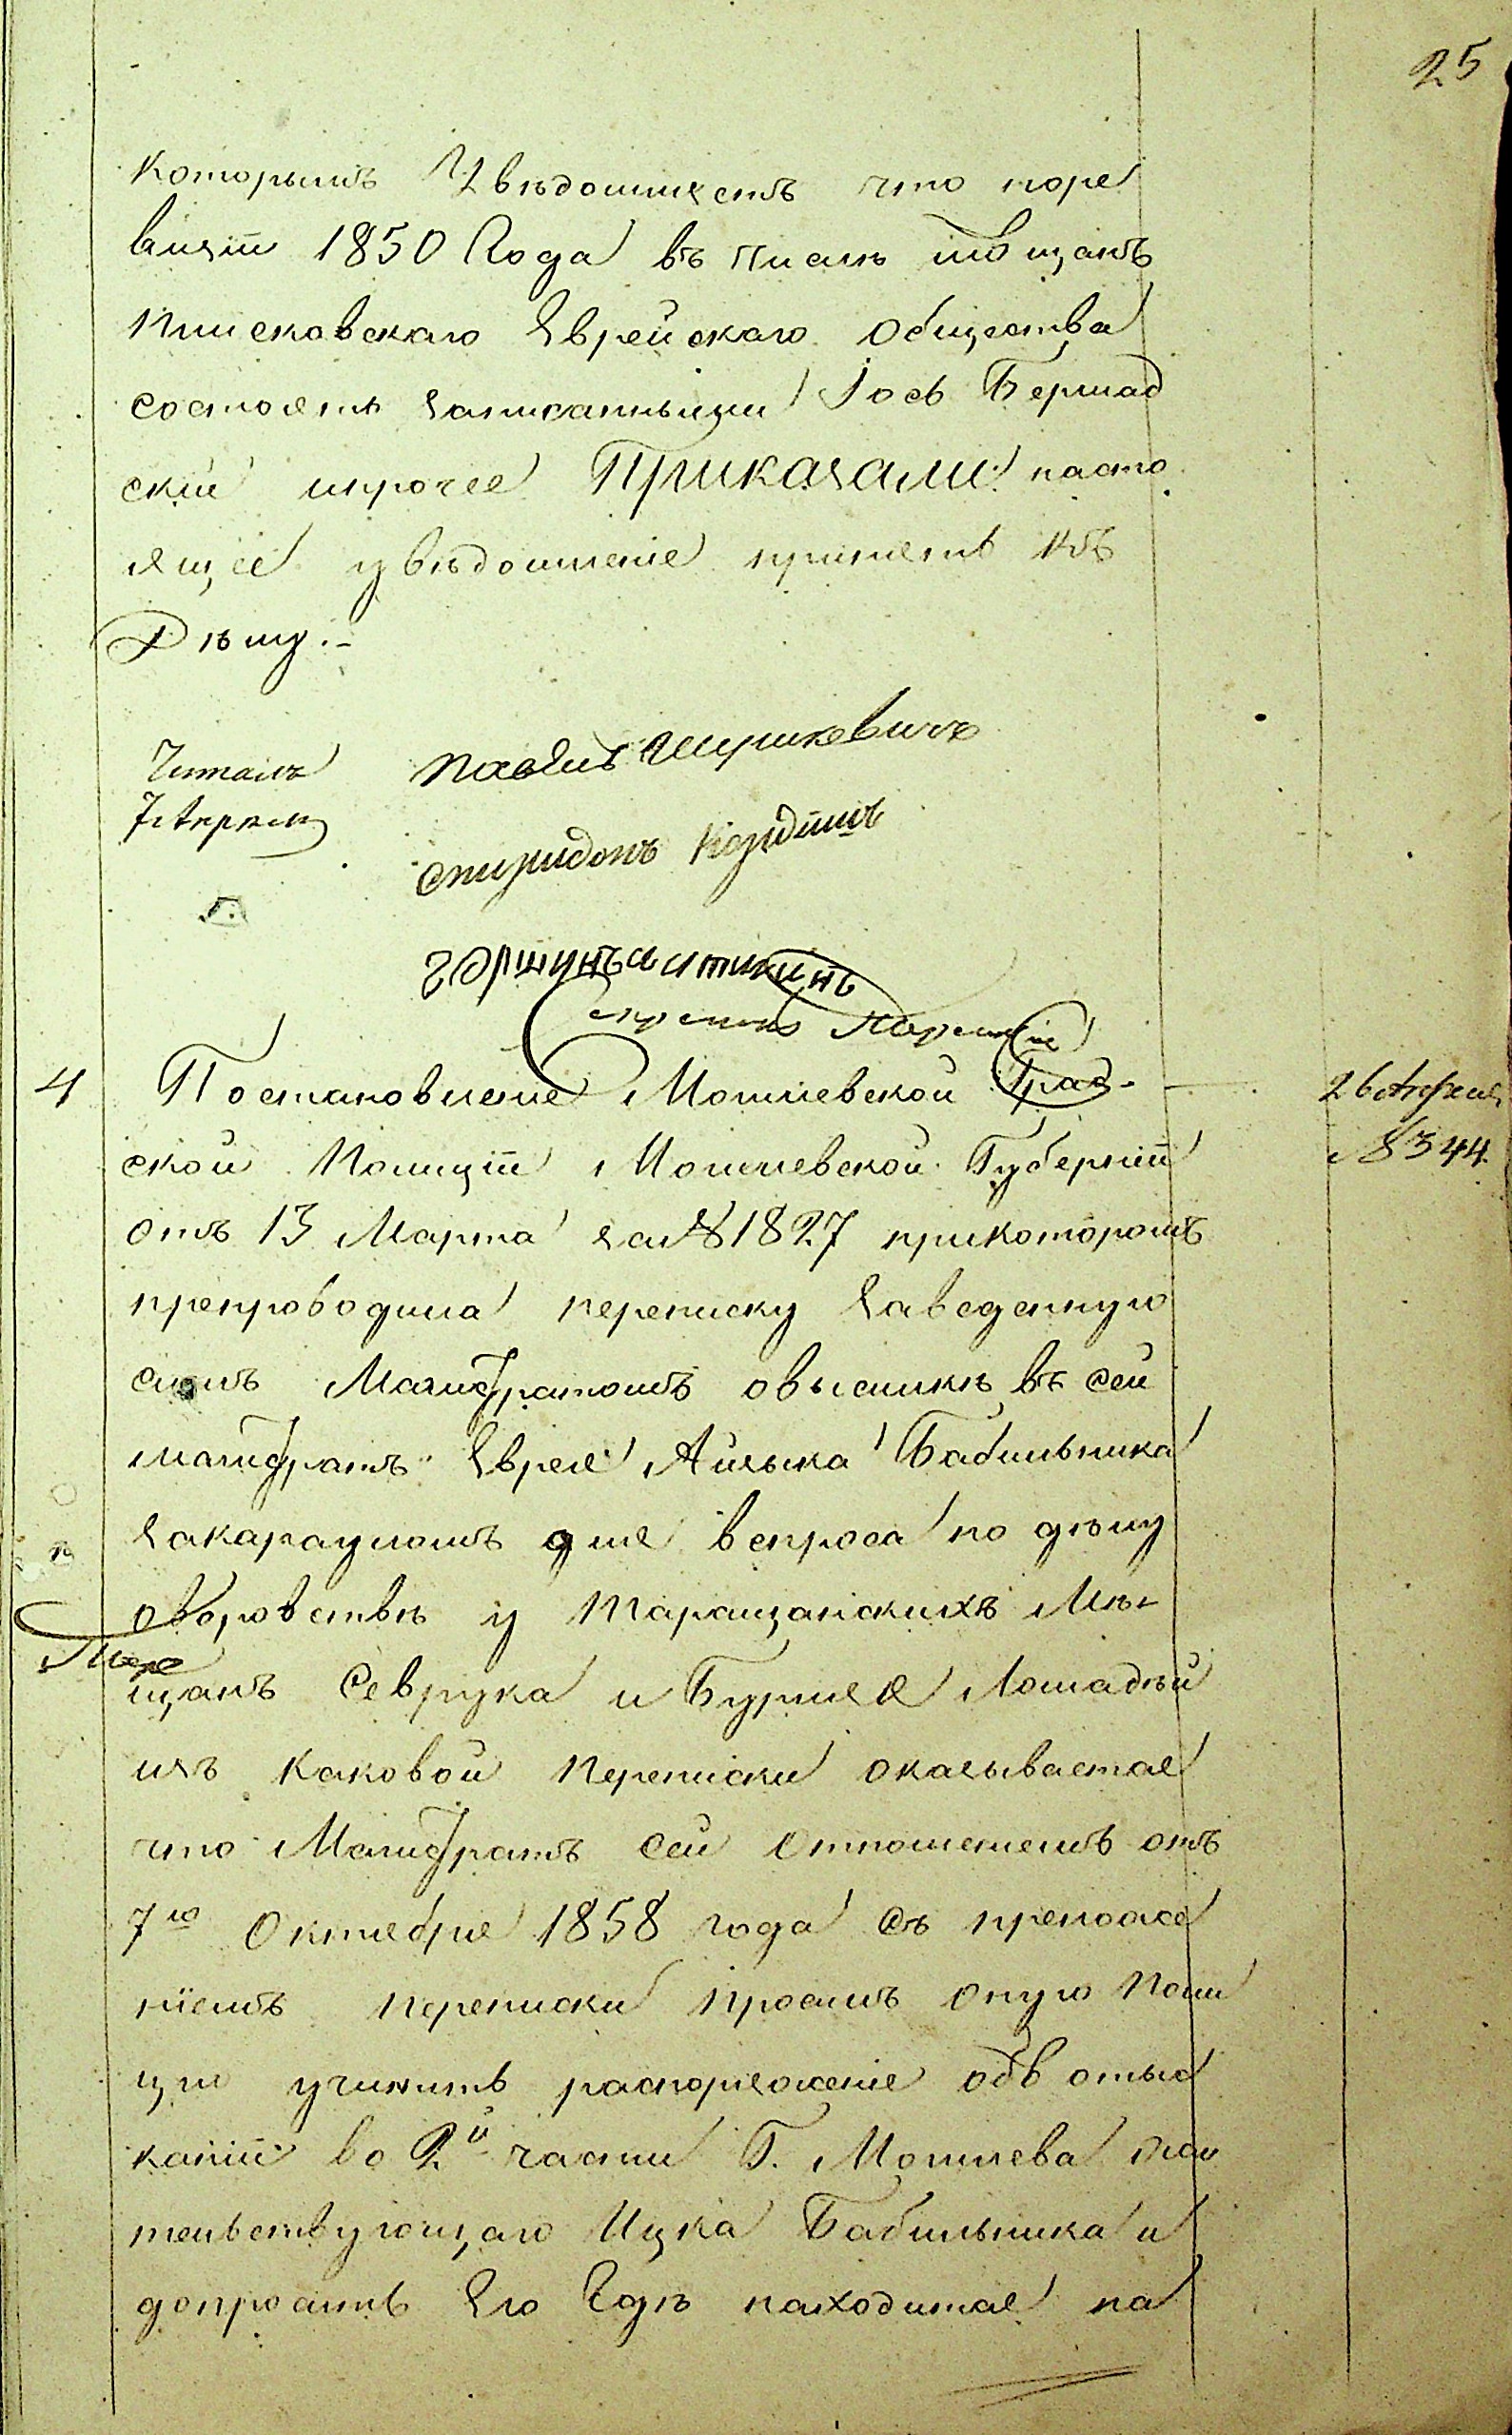 25
которымъ Увѣдомляетъ что поре
визіи 1850 Года въ числѣ мѣщанъ
Писковскаго Еврейскаго Общества
состоятъ записанными Іось Бершад
скій ипрочее Приказали насто
ящее увѣдомленіе принять къ
Дѣлу.-
Читалъ
7 Апрѣля
Павелъ Шушкевичъ
Спиридонъ
4 Постановленіе Могилевской Град-
26 Апреля
№ 344.
ской Полиціи Могилевской Губерніи
отъ 13 Марта за № 1827 прикоторомъ
препроводила переписку Заведенную
симъ Магистратомъ овысылкѣ въ сей
магистратъ Еврея Айзыка Бабильника
Закарауломъ для вспроса по дѣлу
оворовствѣ у Таращанскихъ Мѣ-
щанъ Севрука и Бурляя Лошадѣй
изъ каковой Переписки оказывается
что Магистратъ сей Отношенемъ отъ
7го Октября 1858 года съ преложе
ніемъ переписки просилъ оную Поли
цію учинить распоряженіе объ отыс
каніи во 2й части Г. Могилева жи
тельствующаго Ицка Бабильника и
допросить Его Гдѣ находится на